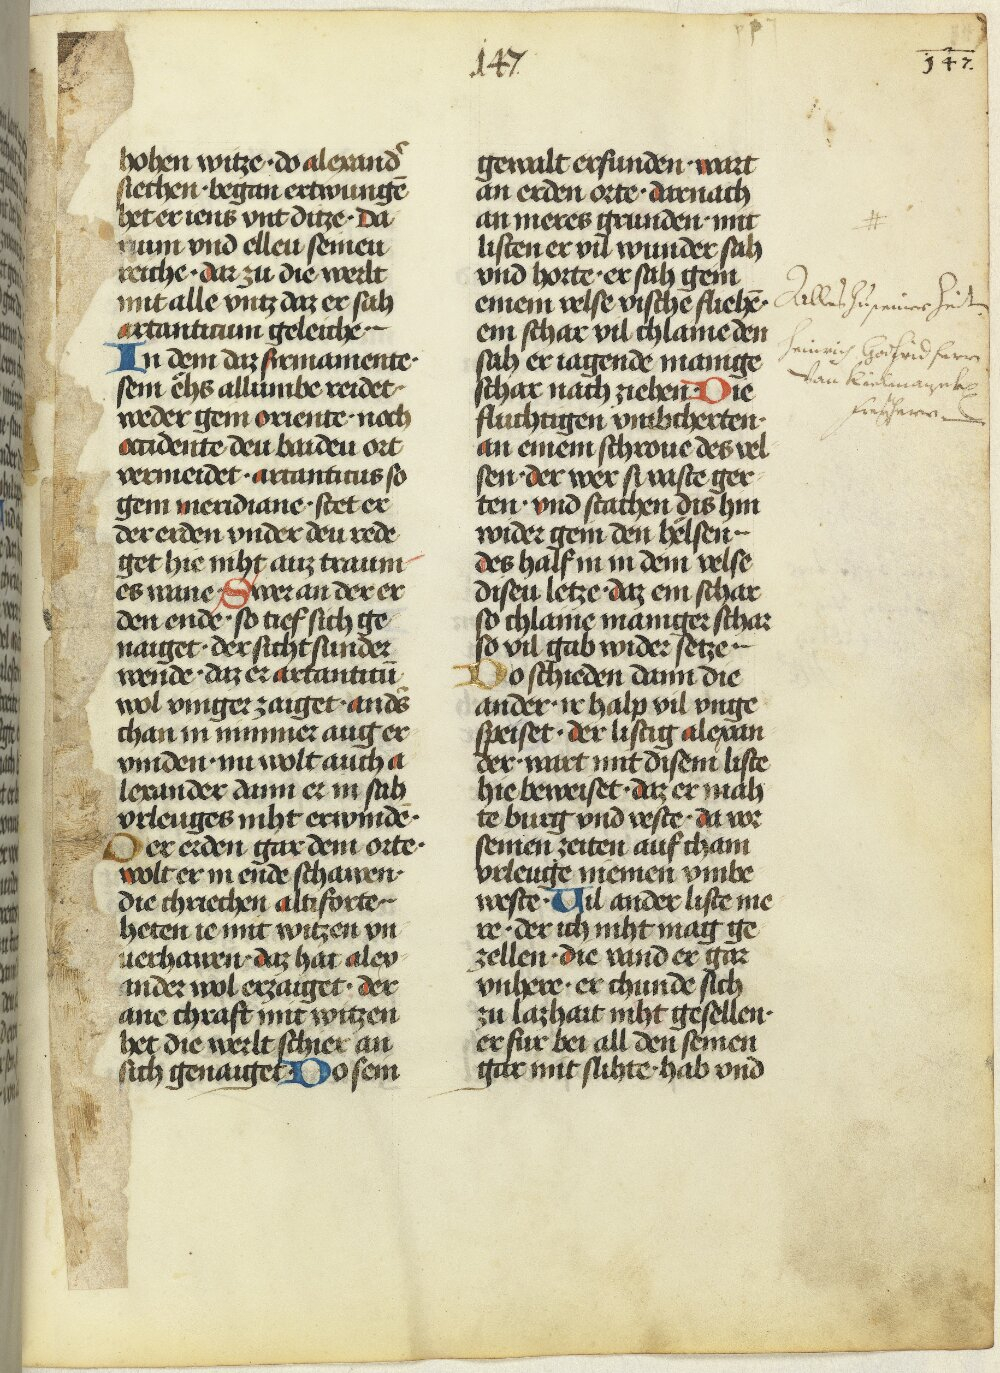 147
147.
hohen witze · do alexand͛
siechen · began ertwungē
het er iens vnt ditze · Da
rium vnd elleu seineu
reiche · daz zu die werlt
mit alle vntz daz er sah
artanticum geleiche ·
In dem daz firmamente ·
sein ēhs allumbe reidet ·
weder gein oriente · noch
occidente deu baideu ort
vermeidet · artanticus so
gein meridiane · stet er
der erden vnder deu rede
get hie niht auz traum
es wane · Swer an der er
den ende · so tief sich ge
naiget · der sicht sunder
wende · daz er artanticū
wol vinger zaiget · and͛s
chan in nimmer aug er
vinden · nu wolt auch a
lexander dann er in sah
vrleuges niht erwinde ·
Der erden gar dem orte ·
wolt er in ende schawen ·
die chriechen altiforte ·
heten ie mit witzen vn
uerhawen · daz hat alex
ander wol erzaiget · der
ane chraft mit witzen
het die werlt schier an
sich genaiget · Do sein
gewalt erfunden · wart
an erden orte · darnach
an meres grunden · mit
listen er vil wunder sah
vnd horte · er sah gein
einem velse vische fliehē ·
ein schar vil chlaine den
sah er iagende manige
schar nach ziehen · Die
fluchtigen vmbcherten ·
an einem schroue des vel
sen · der wer si vaste ger
ten · vnd stachen dis hin
wider gein den helsen ·
des half in in dem velse
diseu letze · daz ein schar
so chlaine maniger schar
so vil gab wider setze ·
Do schieden dann die
ander · ir halp vil vnge
speiset · der listig alexan
der · wart mit disem liste
hie beweiset · daz er mah
te burg vnd veste · da vor
seinen zeiten auf cham
vrleuge niemen vmbe
weste · Vil ander liste me
re · der ich niht mag ge
zellen · die vand er gar
vnhere · er chunde sich
zu lazhait niht gesellen ·
er fur bei all den seinen
gar mit slihte · hab vnd